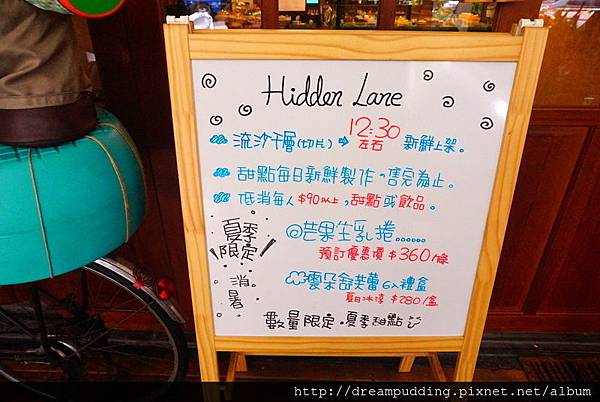 Hidden Lane
流沙千層(切片) → 12:30 左右 新鮮上架。
甜點每日新鮮製作,售完為止。
低消每人 $90以上,甜點 或 飲品。
夏季限定
消暑
@芒果生乳捲......
預訂優惠價 $360/條
雲朵舒芙蕾 6入禮盒
夏日冰涼 $280/盒
數量限定·夏季甜點
http://dreampudding.pixnet.net/album